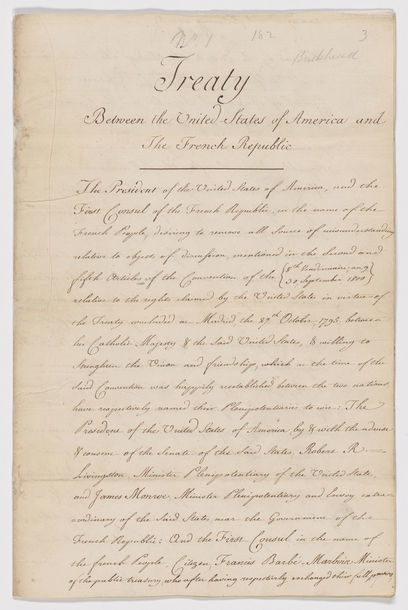 182
3
Treaty
Between the United States of America and
The French Republic
The President of the United States of America, and the
First Consul of the French Republic, in the name of the
French People, desiring to remove all Source of misunderstanding
relative to objects of discussion, mentioned in the Second and
fifth Articles of the Convention of the { 8th Vendémiaire, an 9
30 September 1800 }
relative to the rights claimed by the United States in virtue of
the Treaty concluded at Madrid the 27th October, 1795, between
his Catholic Majesty & the Said United States, & willing to
Strengthen the Union and friendship, which at the time of the
Said Convention was happily reestablished between the two nations
have respectively named their Plenipotentiaries to wit: The
President of the United States of America by & with the advice
& consent of the Senate of the Said States, Robert R.
Livingston, Minister Plenipotentiary of the United States
and James Monroe, Minister Plenipotentiary and Envoy extra-
ordinary of the Said States, near the Government of the
French Republic: And the First Consul in the name of
the french People, Citizen Francis Barbé Marbois Minister
of the public treasury, who after having respectively exchanged their full powers